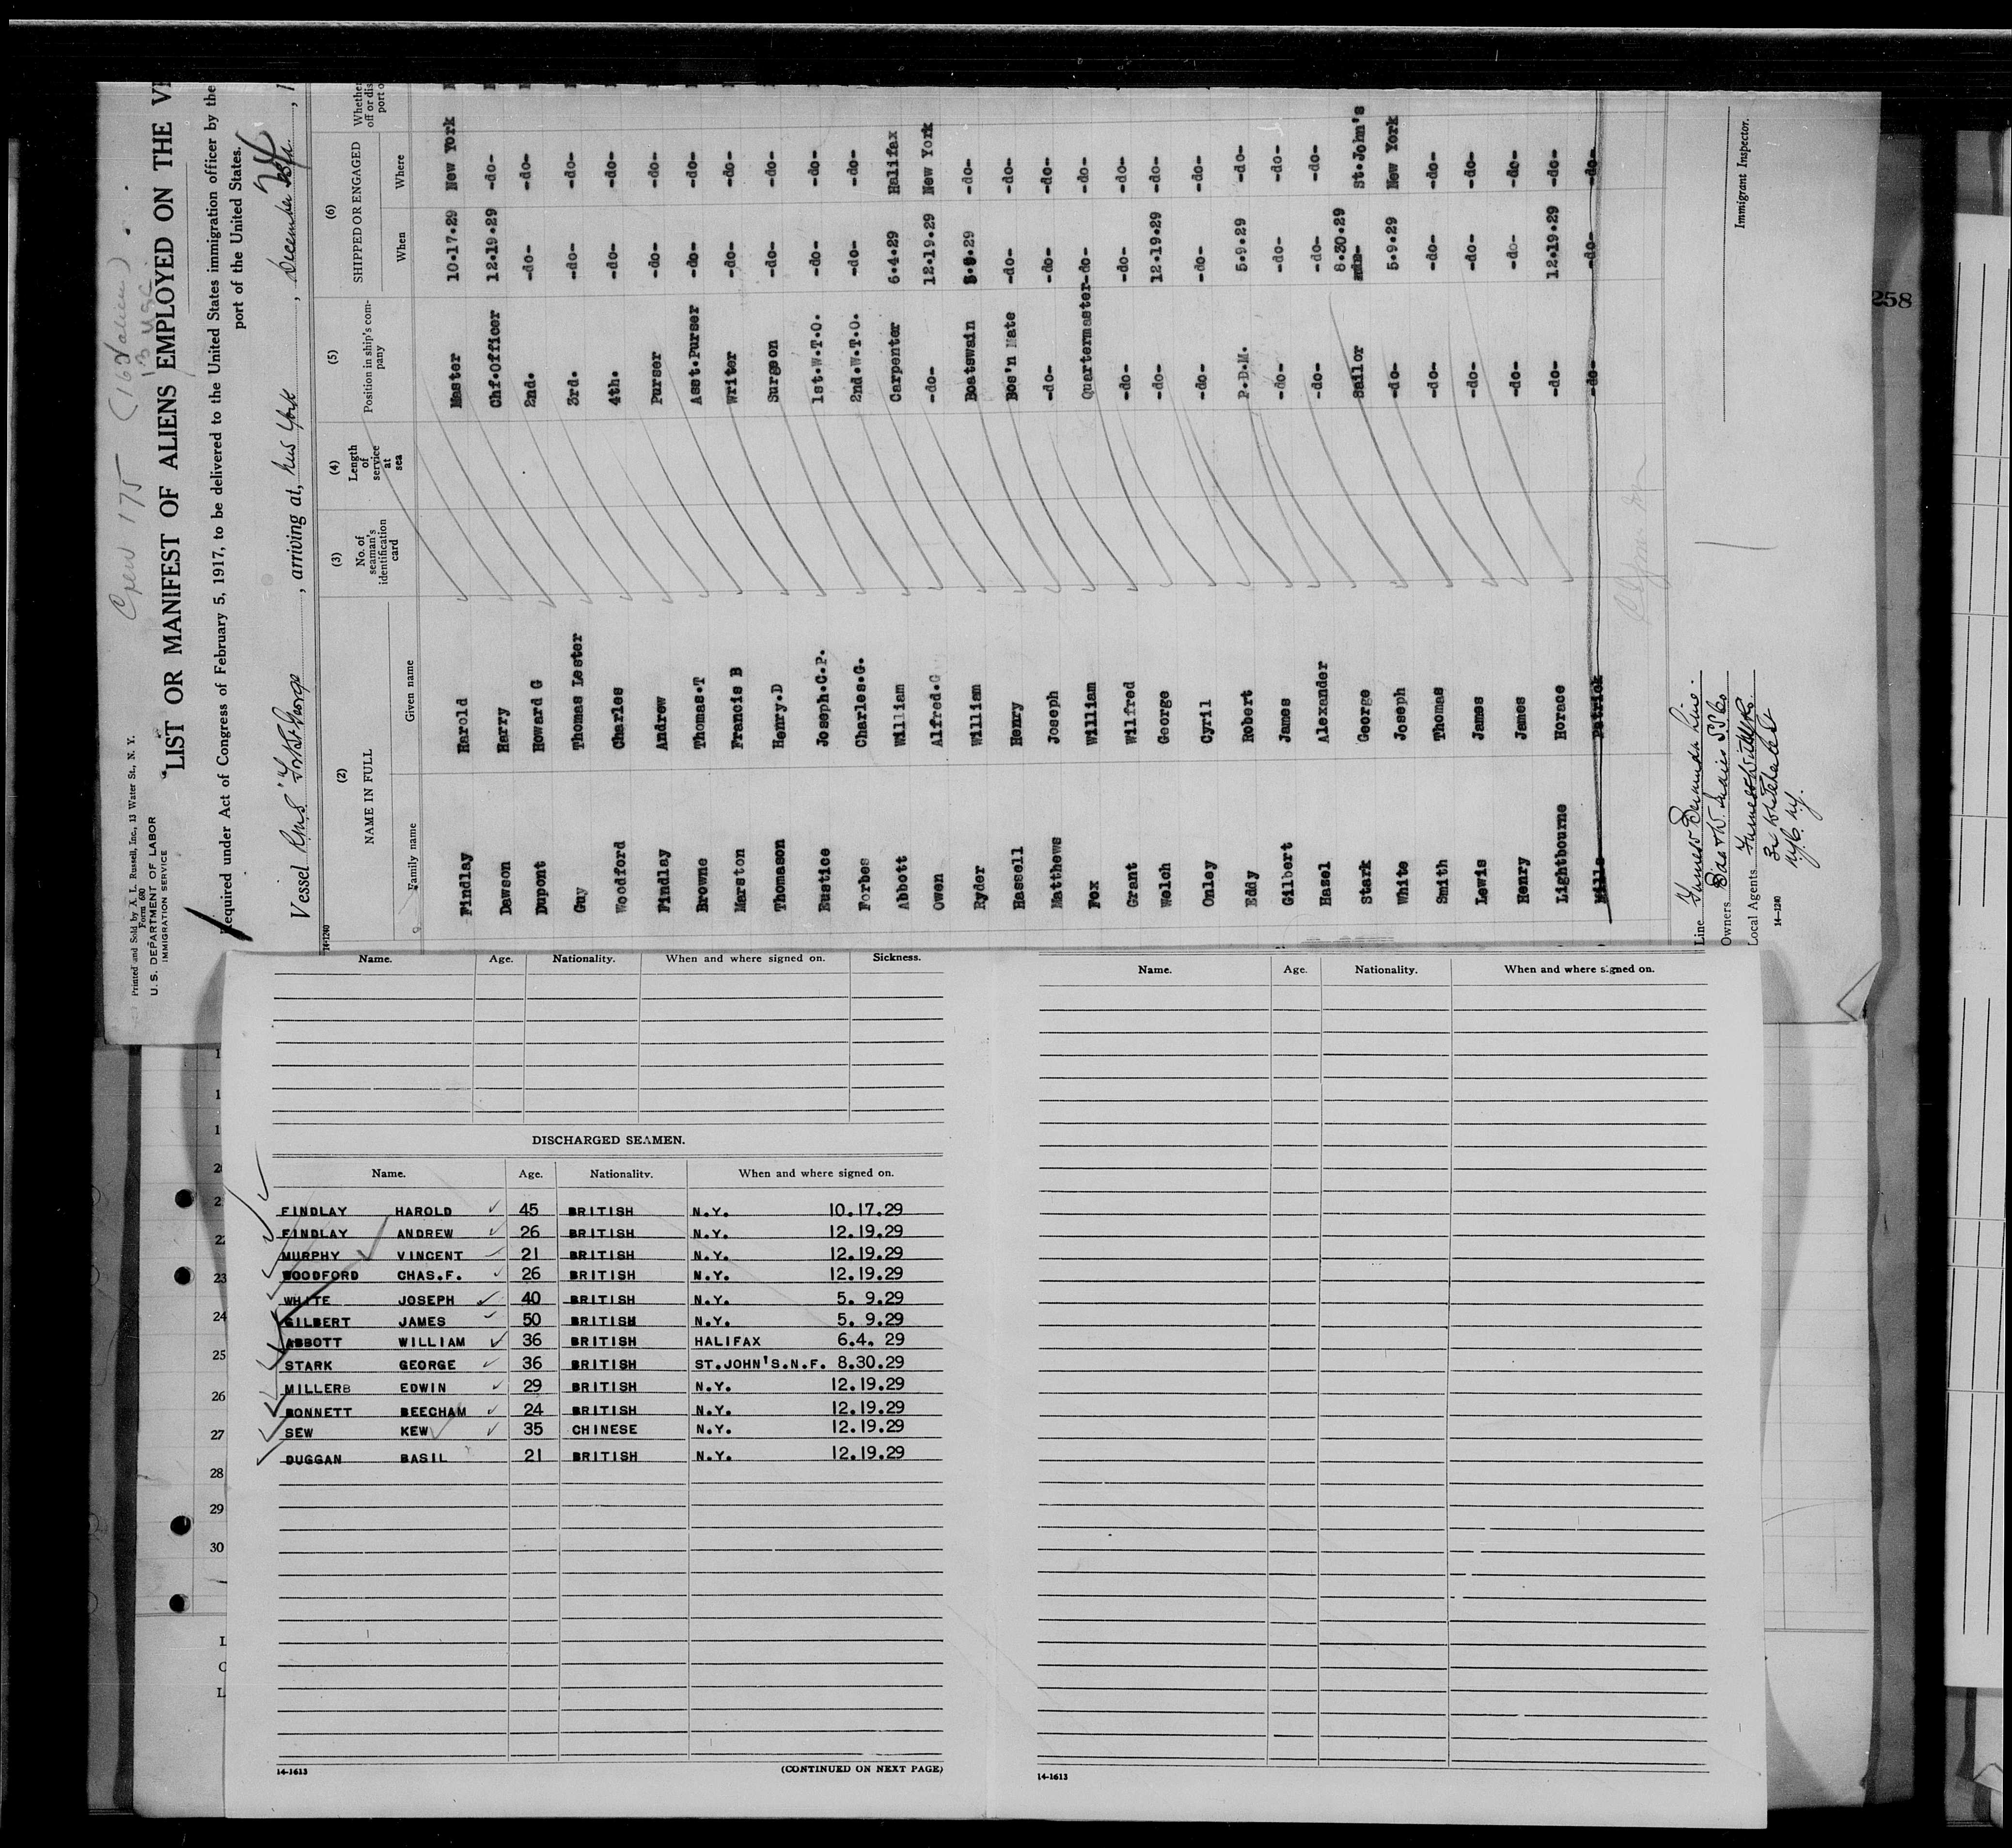 Crew 175
Printed and Sold by A. L. Russell, Inc., 13 Water St., N. Y.
Form 680
U. S. DEPARTMENT OF LABOR
IMMIGRATION SERVICE
LIST OR MANIFEST OF ALIENS EMPLOYED ON THE VE
Required under Act of Congress of February 5, 1917, to be delivered to the United States immigration officer by the
port of the United States.
Vessel R.M.S. "Fort St George, arriving at, New York, December
14-1240
(2) (3) (4) (5) (6)
NAME IN FULL No. of seaman's identification card Length of service at sea Position in ship's com-pany SHIPPED OR ENGAGED Whether
Family name Given name When Where
Findlay Harold Master 10.17.29 New York
Dawson Harry Chf.Officer 12.19.29 -do-
Dupont Howard G 2nd. -do- -do-
Guy Thomas Lester 3rd. -do- -do-
Woodford Charles 4th. -do- -do-
Findlay Andrew Purser -do- -do-
Browne Thomas.T Asst.Purser -do- -do-
Marston Francis B Writer -do- -do-
Thomason Henry.D Surgeon -do- -do-
Eustice Joseph.C.P. 1st.W.T.O. -do- -do-
Forbes Charles.G. 2nd.W.T.O. -do- -do-
Abbott William Carpenter 6.4.29 Halifax
Owen Alfred.G -do- 12.19.29 New York
Ryder William Boatswain 5.9.29 -do-
Hassell Henry Bos'n Mate -do- -do-
Matthews Joseph -do- -do- -do-
Fox William Quartermaster -do- -do-
Grant Wilfred -do- -do- -do-
Welch George -do- 12.19.29 -do-
Onley Cyril -do- -do- -do-
Eddy Robert P.D.M. 5.9.29 -do-
Gilbert James -do- -do- -do-
Hasel Alexander -do- -do- -do-
Stark George Sailor 8.30.29 St.John's
White Joseph -do- 5.9.29 New York
Smith Thomas -do- -do- -do-
Lewis James -do- -do- -do-
Henry James -do- -do- -do-
Lightbourne Horace -do- 12.19.29 -do-
Mills Patrick -do- -do- -do-
Line Furness Bermuda Line.
Owners
Local Agents
14-1240
Immigrant Inspector.
258
Name. Age. Nationality. When and where signed on. Sickness.
DISCHARGED SEAMEN.
Name. Age. Nationality. When and where signed on.
FINDLAY HAROLD 45 BRITISH N.Y. 10.17.29
FINDLAY ANDREW 26 BRITISH N.Y. 12.19.29
MURPHY VINCENT 21 BRITISH N.Y. 12.19.29
WOODFORD CHAS.F. 26 BRITISH N.Y. 12.19.29
WHITE JOSEPH 40 BRITISH N.Y. 5. 9.29
GILBERT JAMES 50 BRITISH N.Y. 5. 9.29
ABBOTT WILLIAM 36 BRITISH HALIFAX 6.4. 29
STARK GEORGE 36 BRITISH ST.JOHN'S.N.F. 8.30.29
MILLERB EDWIN 29 BRITISH N.Y. 12.19.29
BONNETT BEECHAM 24 BRITISH N.Y. 12.19.29
SEW KEW 35 CHINESE N.Y. 12.19.29
DUGGAN BASIL 21 BRITISH N.Y. 12.19.29
14-1613
(CONTINUED ON NEXT PAGE)
Name. Age. Nationality. When and where signed on.
14-1613
22
23
24
25
26
27
28
29
30